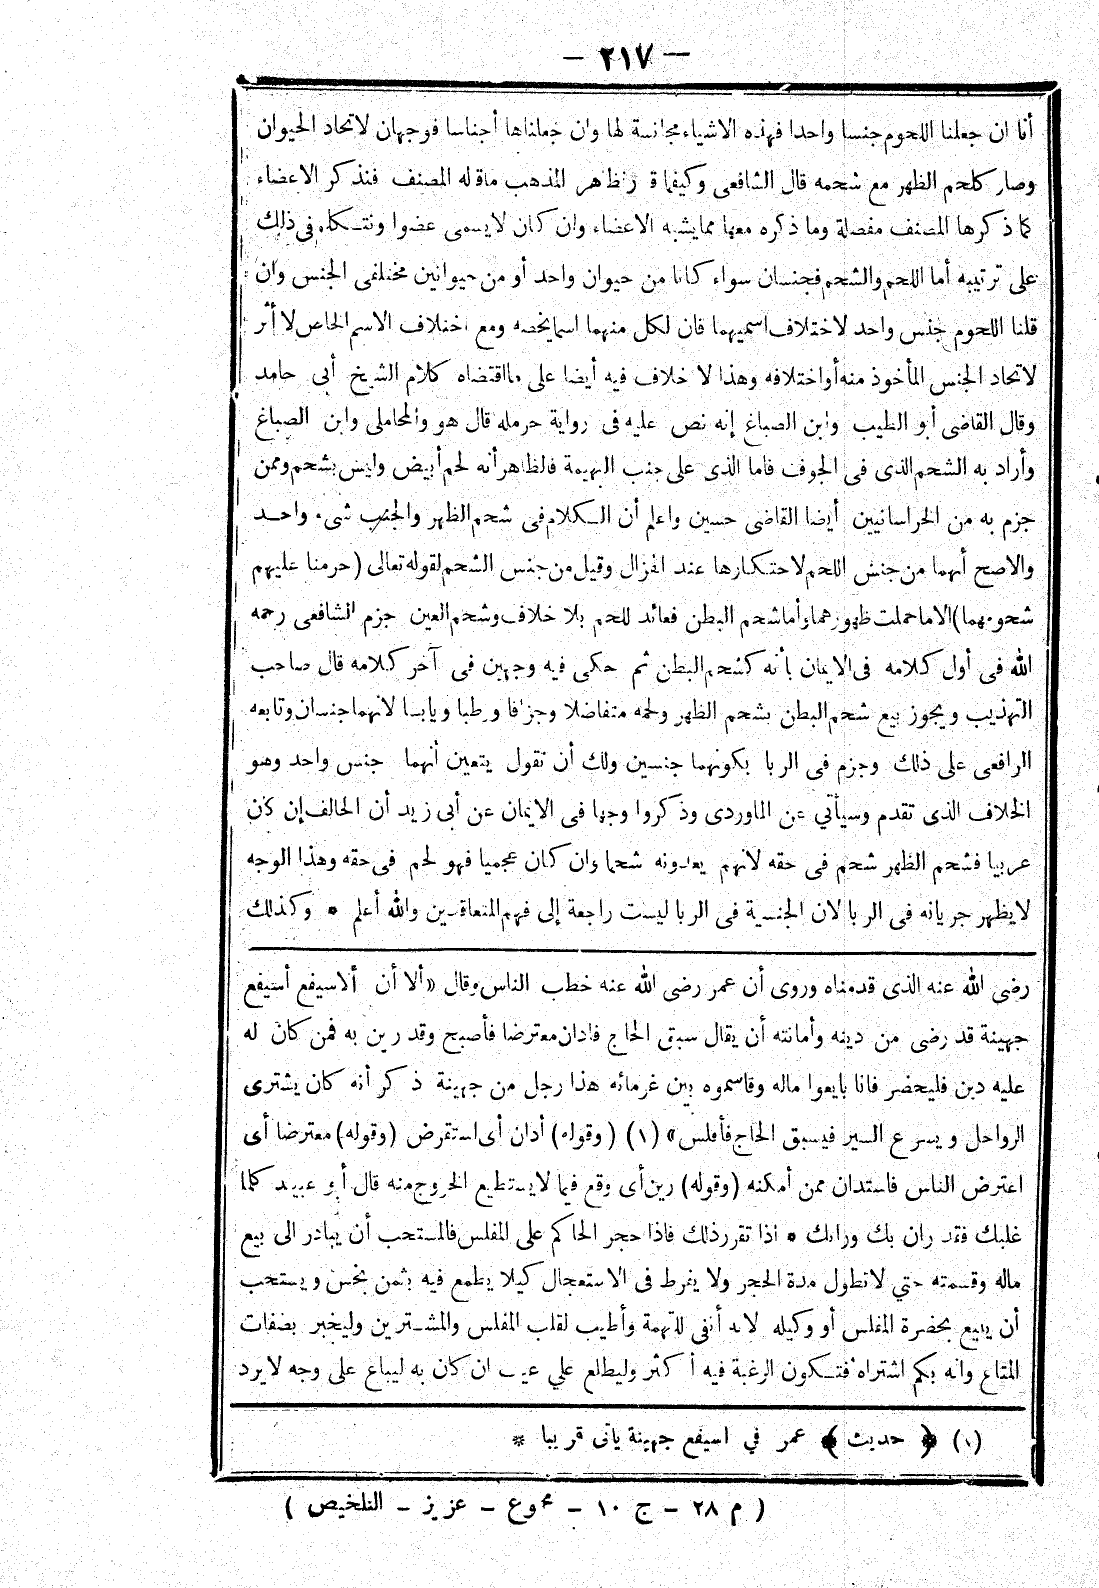 — ٢١٧ —
أنا ان جعلنا اللحوم جنسا واحدا فهذه الاشياء مجانسة لها وان جعلناها أجناسا فوجهان لاتحاد الحيوان
وصار كلحم الظهر مع شحمه قال الشافعى وكيفما قدر فظاهر المذهب ماقاله المصنف فنذكر الاعضاء
كما ذكرها المصنف مفصلة وما ذكره معها ممايشبه الاعضاء وان كان لايسمى عضوا ونتكلم فى ذلك
على ترتيبه أما اللحم والشحم فجنسان سواء كانا من حيوان واحد أو من حيوانين مختلفى الجنس وان
قلنا اللحوم جنس واحد لاختلاف اسميهما فان لكل منهما اسما يخصه ومع اختلاف الاسم الخاص لا أثر
لاتحاد الجنس المأخوذ منه أواختلافه وهذا لا خلاف فيه أيضا على مااقتضاه كلام الشيخ أبى حامد
وقال القاضى أبو الطيب وابن الصباغ إنه نص عليه فى رواية حرمله قال هو والمحاملى وابن الصباغ
وأراد به الشحم الذى فى الجوف فاما الذى على جنب البهيمة فالظاهر أنه لحم أبيض وليس بشحم وممن
جزم به من الخراسانيين أيضا القاضى حسين واعلم أن الكلام فى شحم الظهر والجنب شىء واحد
والاصح أنهما من جنس اللحم لاحتكارها عند الهزال وقيل من جنس الشحم لقوله تعالى (حرمنا عليهم
شحومهما) الا ماحملت ظهورهما وأما شحم البطن فعائد للحم بلا خلاف وشحم العين جزم الشافعى رحمه
الله فى أول كلامه فى الايمان بأنه كشحم البطن ثم حكى فيه وجهين فى آخر كلامه قال صاحب
التهذيب ويجوز بيع شحم البطن بشحم الظهر ولحمه متفاضلا وجزافا ورطبا ويابسا لانهما جنسان وتابعه
الرافعى على ذلك وجزم فى الربا بكونهما جنسين ولك أن تقول يتعين أنهما جنس واحد وهو
الخلاف الذى تقدم وسيأتي عن الماوردى وذكروا وجها فى الايمان عن أبى زيد أن الحالف إن كان
عربيا فشحم الظهر شحم فى حقه لانهم يعدونه شحما وان كان عجميا فهو لحم فى حقه وهذا الوجه
لايظهر جريانه فى الربا لان الجنسية فى الربا ليست راجعة إلى فهم المتعاقدين والله أعلم * وكذلك
رضى الله عنه الذى قدمناه وروى أن عمر رضى الله عنه خطب الناس وقال «ألا أن ألاسيفع أسيفع
جهينة قد رضى من دينه وأمانته أن يقال سبق الحاج فادان معترضا فأصبح وقد رين به فمن كان له
عليه دين فليحضر فانا بايعوا ماله وقاسموه بين غرمائه هذا رجل من جهينة ذكر أنه كان يشترى
الرواحل ويسرع السير فيسبق الحاج فأفلس» (١) (وقوله) أدان أى استقرض (وقوله) معترضا أى
اعترض الناس فاستدان ممن أمكنه (وقوله) رين أى وقع فيما لايستطيع الخروج منه قال أبو عبيد كلما
غلبك فقد ران بك ورانك * اذا تقرر ذلك فاذا حجر الحاكم على المفلس فالمستحب أن يبادر الى بيع
ماله وقسمته حتي لاتطول مدة الحجر ولا يفرط فى الاستعجال كيلا يطمع فيه بثمن بخس ويستحب
أن يبيع بحضرة المفلس أو وكيله لانه أنفى للتهمة وأطيب لقلب المفلس والمشترين وليخبر بصفات
المتاع وانه بكم اشتراه فتكون الرغبة فيه أكثر وليطلع علي عيب ان كان به ليباع على وجه لايرد
(١) ﴿ حديث ﴾ عمر في اسيفع جهينة ياتى قريبا *
( م ٢٨ — ج ١٠ — مجموع — عزيز — التلخيص )